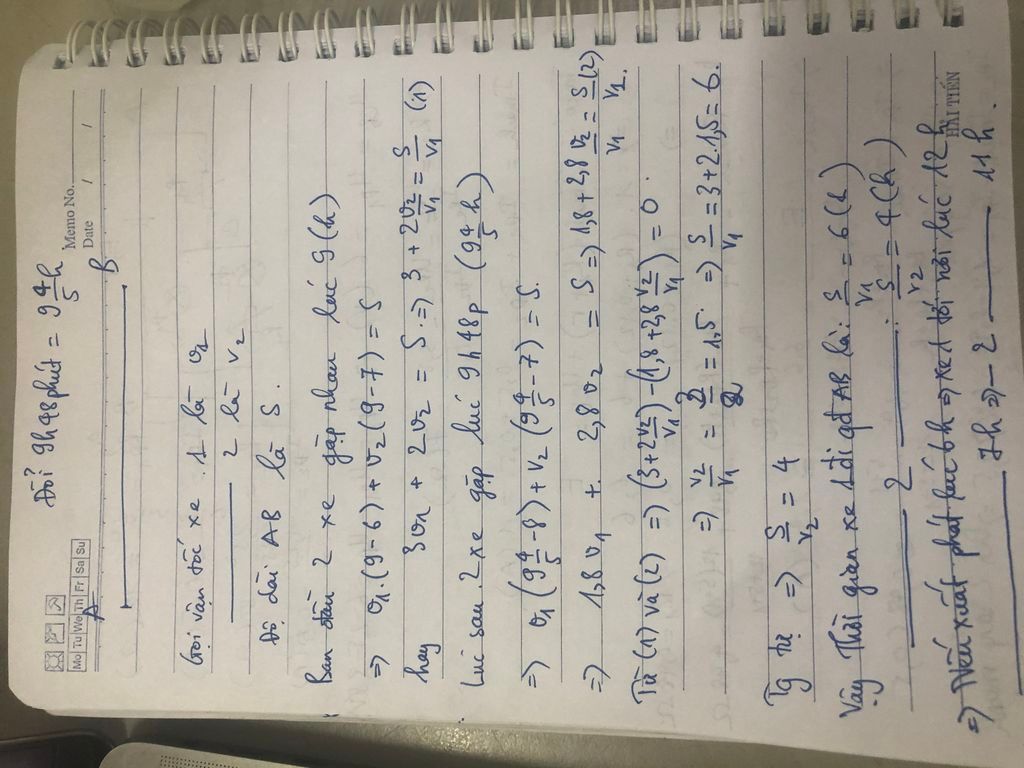 Mo Tu We Th Fr Sa Su
Memo No.
Date / /
Đổi 9h48phút = 9 4/5 h
A B
Gọi vận tốc xe 1 là v₁
——— 2 là v₂
Độ dài AB là S.
Ban đầu 2 xe gặp nhau lúc 9(h)
=> v₁.(9-6) + v₂(9-7) = S
hay 3v₁ + 2v₂ = S => 3 + 2v₂/v₁ = S/v₁ (1)
Lúc sau 2 xe gặp lúc 9h48p (9 4/5 h)
=> v₁(9 4/5 - 8) + v₂(9 4/5 - 7) = S.
=> 1,8v₁ + 2,8v₂ = S => 1,8 + 2,8 v₂/v₁ = S/v₁ (2)
Từ (1) và (2) => (3 + 2 v₂/v₁) - (1,8 + 2,8 v₂/v₁) = 0.
=> v₂/v₁ = 3/2 = 1,5. => S/v₁ = 3 + 2.1,5 = 6.
Tg tự => S/v₂ = 4
Vậy Thời gian xe 1 đi qđ AB là: S/v₁ = 6(h)
——— 2 ———: S/v₂ = 4(h)
=> Nếu xuất phát lúc 6h => xe 1 tới nơi lúc 12h
——— 7h => — 2 ——— 11h.
HẢI TIẾN